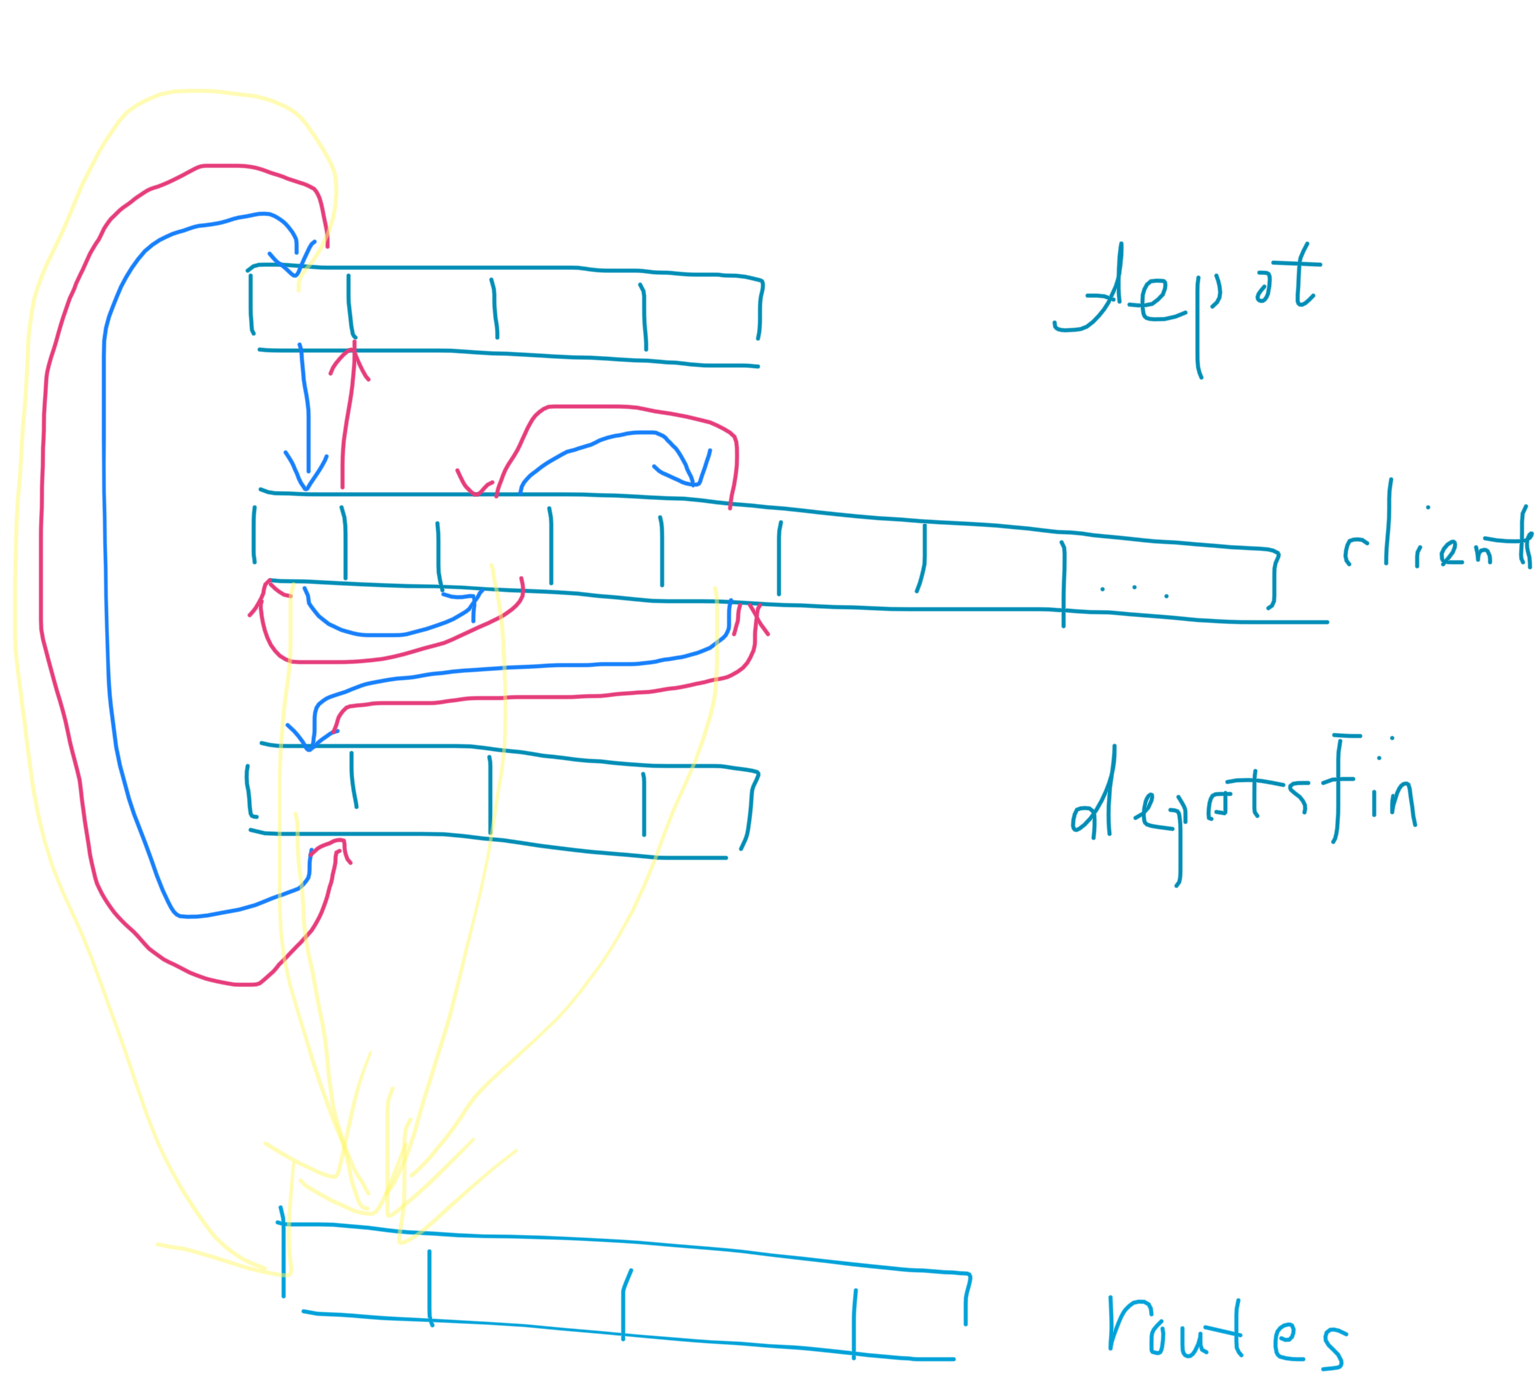 depot
client
. . .
depotsfin
routes